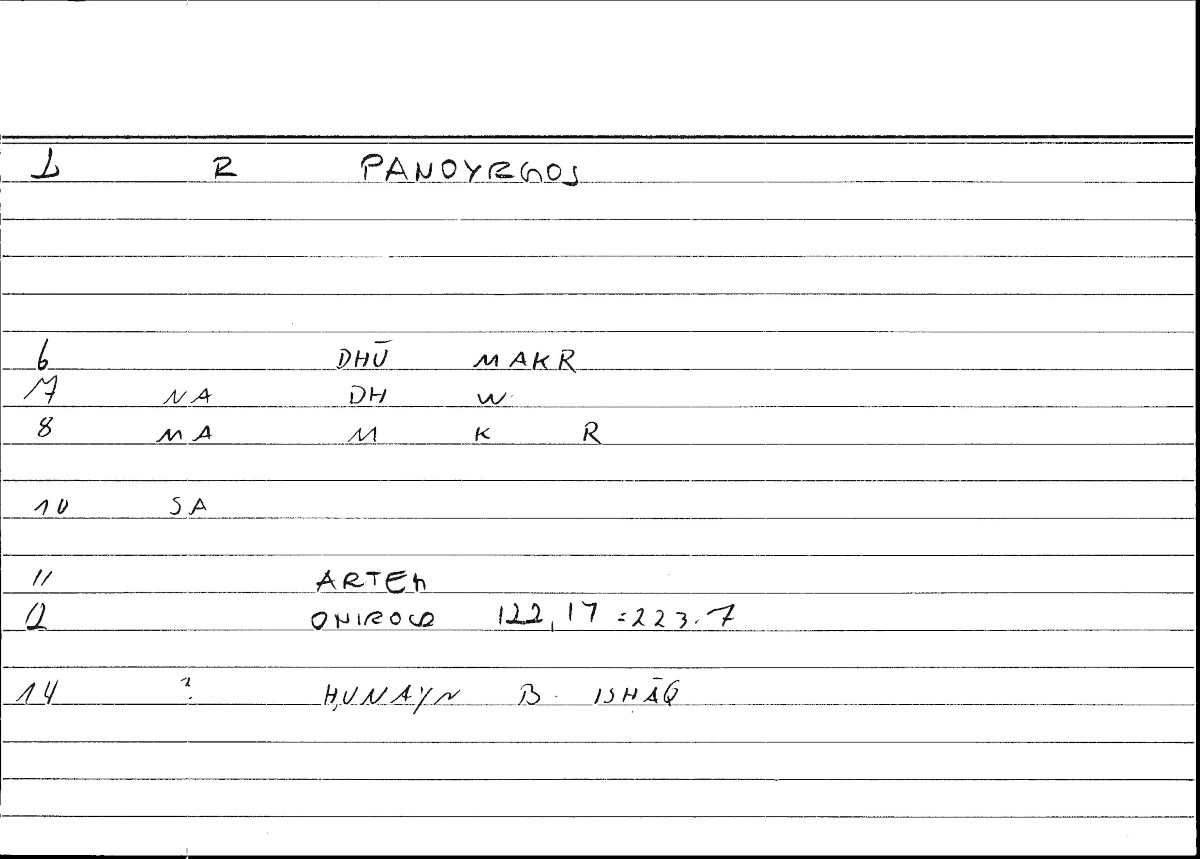 1 R PANOYRGOS
6 DHŪ MAKR
7 NA DH W
8 MA M K R
10 SA
11 ARTEM
12 ONIROCR 122,17 =223.7
14 ? ḤUNAYN B. ISḤĀQ